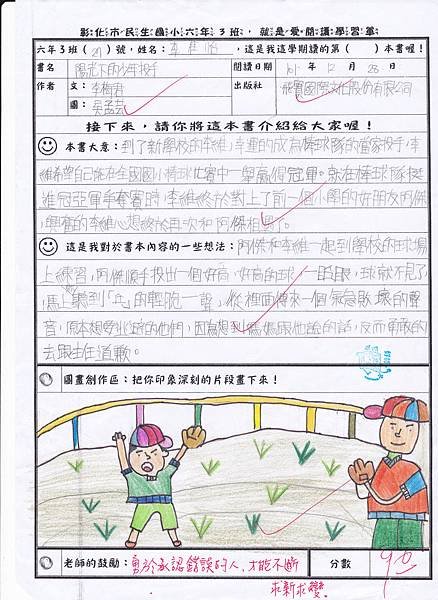 彰化市民生國小六年3班,就是愛閱讀學習單
六年3班(21)號,姓名:李,這是我這學期讀的第( )本書喔!
書名 陽光下的少年投手 閱讀日期 101.年 12月 28日
作者 文:李梅君 出版社 飛寶國際文化股份有限公司
圖:吳孟芸
接下來,請你將這本書介紹給大家喔!
本書大意:到了新學校的李維,幸運的成為棒球隊的當家投手,李
維希望自己能在全國國小棒球比賽中一舉贏得冠軍。就在棒球隊挺
進冠亞軍爭奪賽時,李維終於對上了前一個小學的好朋友阿傑
,興奮的李維心想終於再次和阿傑相
這是我對於書本內容的一些想法:阿傑和李維一起到學校的球場
上練習,阿傑順手投出一個好高、好高的球,一眨眼,球就不見了
,馬上聽到「乓」的輕脆一聲,從裡面傳來一個氣急敗壞的聲
音,原本想要逃跑的他們,因為想到媽媽跟他說的話,反而勇敢的
去跟主任道歉。
圖畫創作區:把你印象深刻的片段畫下來!
老師的鼓勵:勇於承認錯誤的人,才能不斷 分數
求新求變。